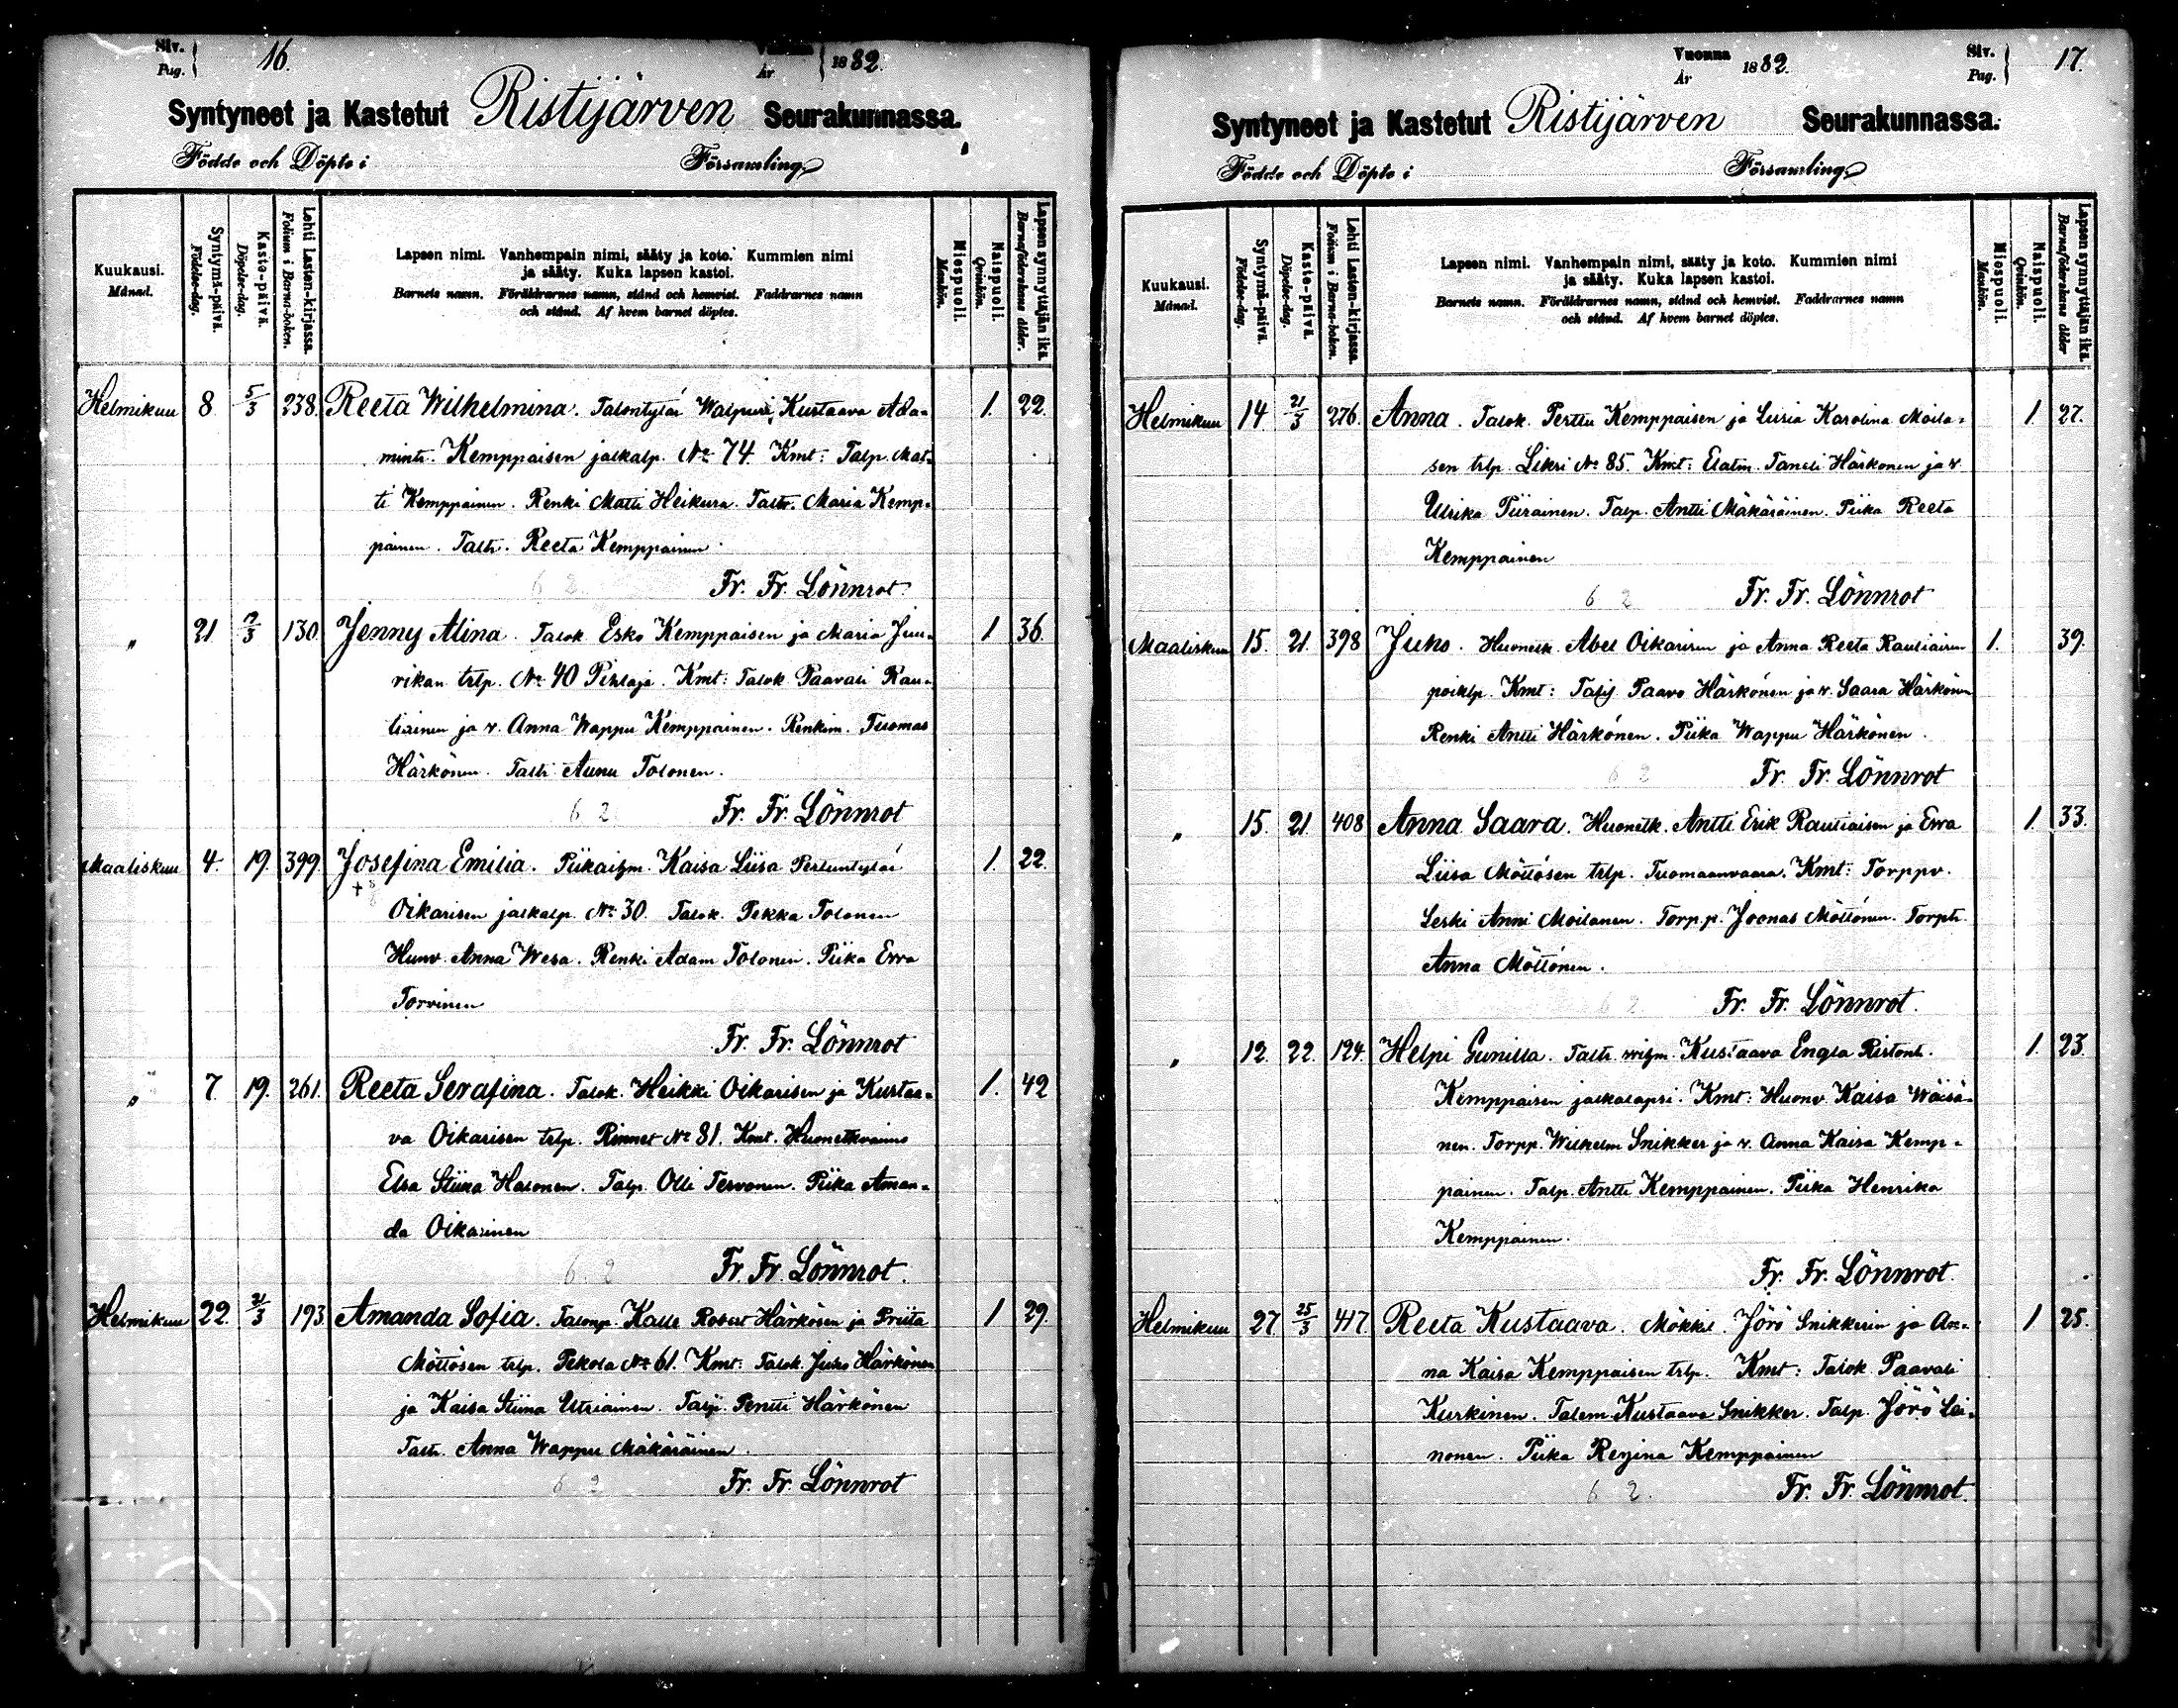 Siv. Pag. 16. Vuonna År 1882.
Syntyneet ja Kastetut Ristijärven Seurakunnassa.
Födde och Döpte i Församling
Kuukausi. Månad.
Syntymä-päivä. Födelse-dag.
Kaste-päivä. Döpelse-dag.
Lehti Lasten-kirjassa. Folium i Barna-boken.
Lapsen nimi. Vanhempain nimi, sääty ja koto. Kummien nimi
ja sääty. Kuka lapsen kastoi.
Barnets namn. Föräldrarnes namn, stånd och hemvist. Faddrarnes namn
och stånd. Af hvem barnet döptes.
Miespuoli. Mankön.
Naispuoli. Qvinkön.
Lapsen synnyttäjän ikä. Barnaföderskans ålder.
Helmikuu 8 5/3 238. Reeta Wilhelmina. Talontytär Walpuri Kustaava Ada- 1. 22.
mintr. Kemppaisen jalkalp. No 74. Kmt: Talp. Mat-
ti Kemppainen. Renki Matti Heikura. Taltr. Maria Kemp-
painen. Taltr. Reeta Kemppainen.
6 2 Fr. Fr. Lönnrot
" 21 7/3 130 Jenny Alina. Talok. Esko Kemppaisen ja Maria Juu- 1 36.
rikan trlp. No 40 Pihlaja. Kmt: Talok. Paavali Rau-
tiainen ja v. Anna Wappu Kemppainen. Renkim. Tuomas
Härkönen. Taltr. Aunu Tolonen.
6 2 Fr. Fr. Lönnrot
Maaliskuu 4. 19. 399. Josefina Emilia. Piikaihm. Kaisa Liisa Pertuntytär 1. 22.
Oikarisen jalkalp. No 30. Talok. Pekka Tolonen
Huonv. Anna Wesa. Renki Adam Tolonen. Piika Eeva
Torvinen
Fr. Fr. Lönnrot
" 7 19. 261. Reeta Serafina. Talok. Heikki Oikarisen ja Kustaa- 1. 42
va Oikarisen trlp. Rinnet No 81. Kmt. Huonetkvaimo
Elsa Stiina Halonen. Talp. Olli Tervonen. Piika Aman-
da Oikarinen
6 2 Fr. Fr. Lönnrot.
Helmikuu 22. 21/3 193 Amanda Sofia. Talonp. Kalle Robert Härkösen ja Priita 1 29.
Möttösen trlp. Pekola No 61. Kmt: Talok. Juho Härkönen
ja Kaisa Stiina Utriainen. Talp. Pentti Härkönen
Taltr. Anna Wappu Mäkäräinen.
6 2 Fr. Fr. Lönnrot
Vuonna År 1882. Siv. Pag. 17.
Syntyneet ja Kastetut Ristijärven Seurakunnassa.
Födde och Döpte i Församling
Kuukausi. Månad.
Syntymä-päivä. Födelse-dag.
Kaste-päivä. Döpelse-dag.
Lehti Lasten-kirjassa. Folium i Barna-boken.
Lapsen nimi. Vanhempain nimi, sääty ja koto. Kummien nimi
ja sääty. Kuka lapsen kastoi.
Barnets namn. Föräldrarnes namn, stånd och hemvist. Faddrarnes namn
och stånd. Af hvem barnet döptes.
Miespuoli. Mankön.
Naispuoli. Qvinkön.
Lapsen synnyttäjän ikä. Barnaföderskans ålder
Helmikuu 14 21/3 276. Anna. Talok. Perttu Kemppaisen ja Luisa Karolina Moila- 1. 27.
sen trlp. Likri No 85. Kmt: Elatm. Taneli Härkonen ja v.
Ulrika Piirainen. Talp. Antti Mäkäräinen. Piika Reeta
Kemppainen
6 2 Fr. Fr. Lönnrot
Maaliskuu 15. 21. 398 Juho. Huonetk. Abel Oikarisen ja Anna Reeta Rautiaisen 1. 39.
poiklp. Kmt: Paavo Härkönen ja v. Saara Härkönen
Renki Antti Härkönen. Piika Wappu Härkönen.
6 2 Fr. Fr. Lönnrot
" 15. 21. 408 Anna Saara. Huonetk. Antti Erik Rautiaisen ja Eeva 1. 33.
Liisa Möttösen trlp. Tuomaanvaara. Kmt: Torppv.
Leski Anni Moilanen. Torp.p. Joonas Möttönen. Torptr.
Anna Möttönen.
6 2 Fr. Fr. Lönnrot.
" 12. 22. 124. Helpi Gunilla. Taltr. Kustaava Engla Ristontr. 1. 23.
Kemppaisen jalkalapsi. Kmt: Huonv. Kaisa Wäisä-
nen. Torpp. Wilhelm Snikker ja v. Anna Kaisa Kemp-
painen. Talp. Antti Kemppainen. Piika Henrika
Kemppainen.
Fr. Fr. Lönnrot.
Helmikuu 27. 25/3 417. Reeta Kustaava. Mökkil. Jörö Snikkerin ja An- 1 25.
na Kaisa Kemppaisen trlp. Kmt: Talok. Paavali
Kurkinen. Talem. Kustaava Snikker. Talp. Jörö Lei-
nonen. Piika Regina Kemppainen
6 2. Fr. Fr. Lönnrot.